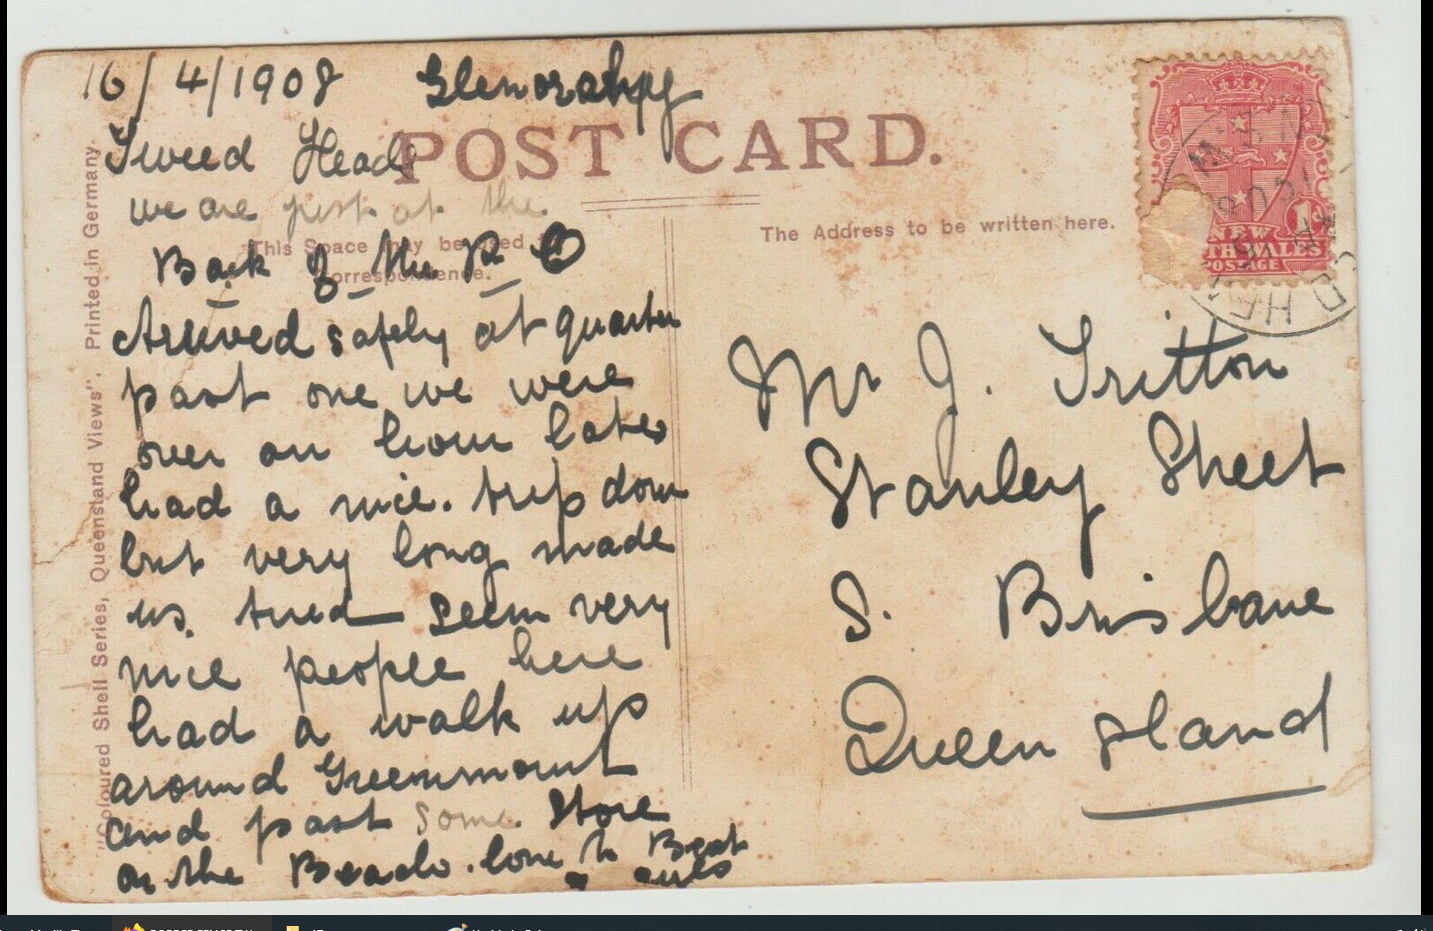 16/4/1908
Tweed Heads
we are just at the
Back of the P. O
Arrived safely at quarter
past one we were
over an hour late
had a nice. trip down
but very long made
us. tired seem very
nice people here
had a walk up
around Greenmount
and past some. Store
on the Beach. love to
POST CARD.
This Space may be used
correspondence.
The Address to be written here.
"Coloured Shell Series, Queensland Views". Printed in Germany.
Mr J. Tritton
Stanley Street
S. Brisbane
Queensland
NEW
TH WALES
POSTAGE